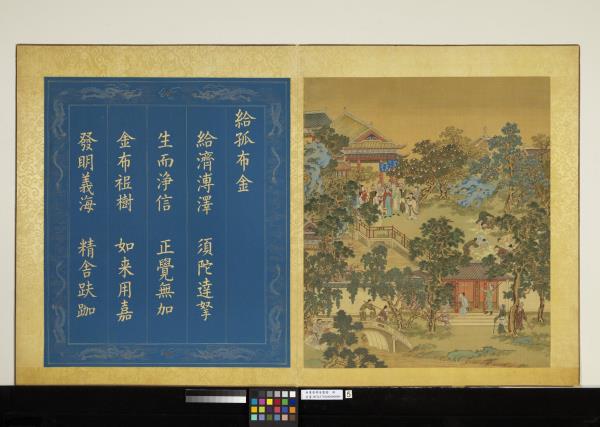 給孤布金
給濟溥澤 須陀達拏
生而淨信 正覺無加
金布祗樹 如来用嘉
發明義海 精舍趺跏